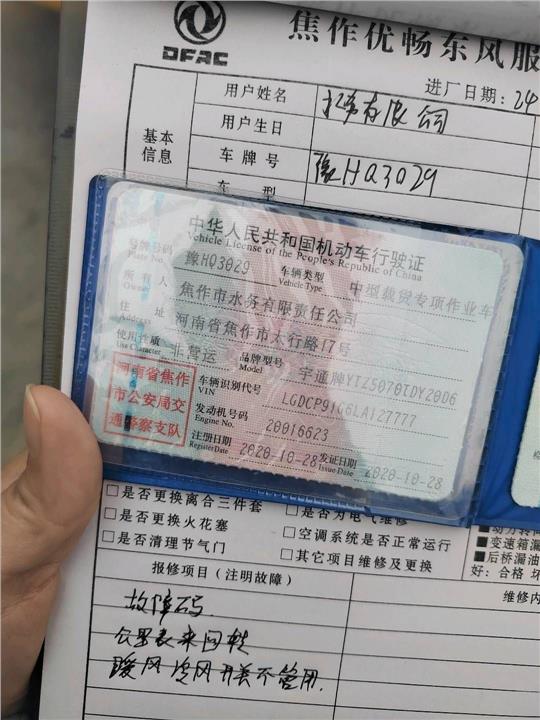 DFAC
焦作优畅东风服
进厂日期：24
基本信息
用户姓名
有限公司
用户生日
车牌号
豫HQ3029
车 型
中华人民共和国机动车行驶证
Vehicle License of the People's Republic of China
号牌号码 豫HQ3029 车辆类型 中型载货专项作业车
Plate No. Vehicle Type
所有人 焦作市水务有限责任公司
Owner
住址 河南省焦作市太行路17号
Address
使用性质 非营运 品牌型号 宇通牌YTZ5070TDY20D6
Use Character Model
河南省焦作
市公安局交
通警察支队
车辆识别代号 LGDCP91G6LA127777
VIN
发动机号码 20016623
Engine No.
注册日期 2020-10-28 发证日期 2020-10-28
Register Date Issue Date
□是否更换离合三件套 □是否为电气维修
□是否更换火花塞 □空调系统是否正常运行
□是否清理节气门 □其它项目维修及更换
■动力转向
■变速箱漏
■后桥漏油
好：合格 坏
报修项目（注明故障）
维修内
故障码
公里表来回转
暖风 冷风 开关不管用.